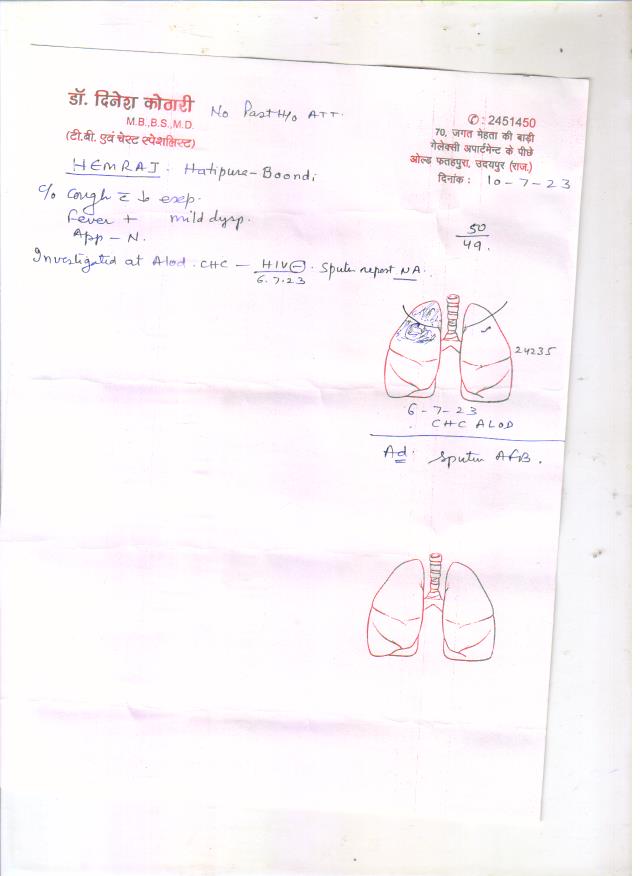 डॉ. दिनेश कोठारी
M.B.,B.S.,M.D.
(टी.बी. एवं चेस्ट स्पेशलिस्ट)
No Past H/o ATT.
✆ : 2451450
70, जगत मेहता की बाड़ी
गेलेक्सी अपार्टमेन्ट के पीछे
ओल्ड फतहपुरा, उदयपुर (राज.)
दिनांक : 10-7-23
HEMRAJ : Hatipura-Boondi
C/o Cough c̄ ↓ exep.
Fever + mild dysp.
App - N.
50
49.
Investigated at Alod. CHC - HIV ⊖ . Sputm report NA.
6.7.23
24235
6-7-23
CHC ALOD
Ad. Sputm AFB.